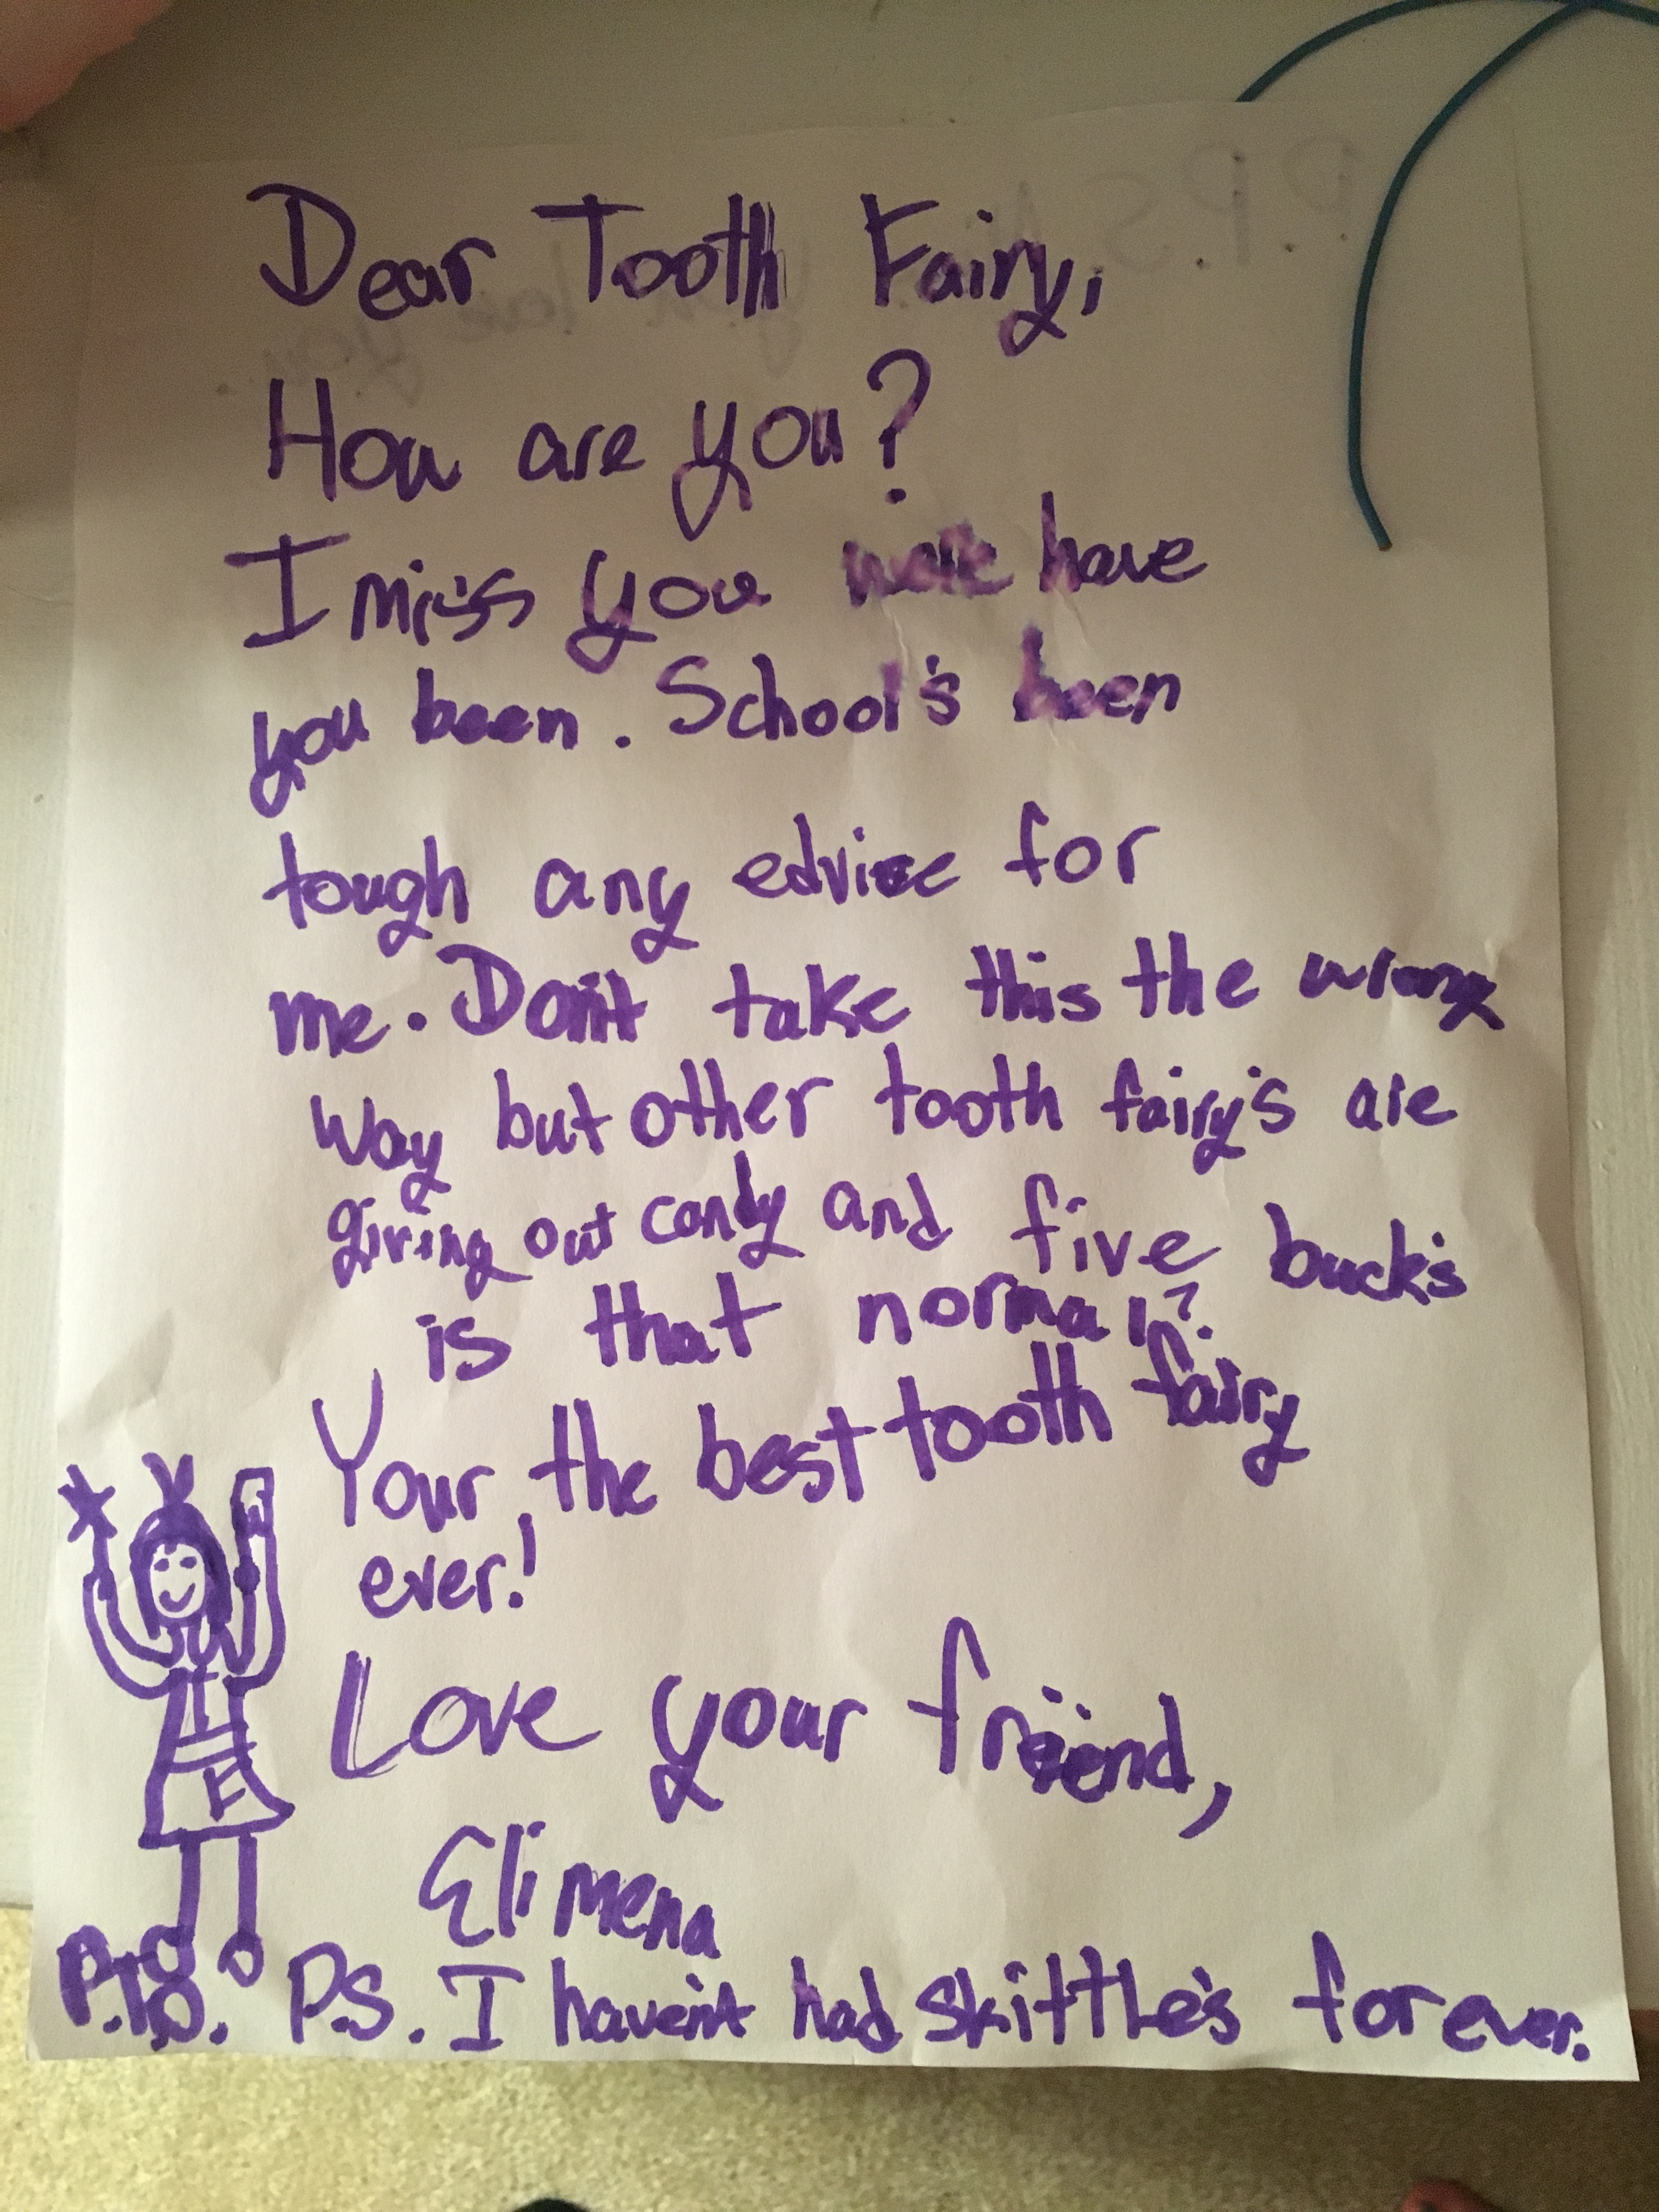 Dear Tooth Fairy,
How are you?
I miss you were have
you been. School's been
tough any edvice for
me. Don't take this the wrong
Way but other tooth fairy's are
giving out candy and five buck's
is that normal?
Your, the best tooth fairy
ever!
Love your friend,
Elimena
P.T.O. P.S. I haven't had skittle's forever.